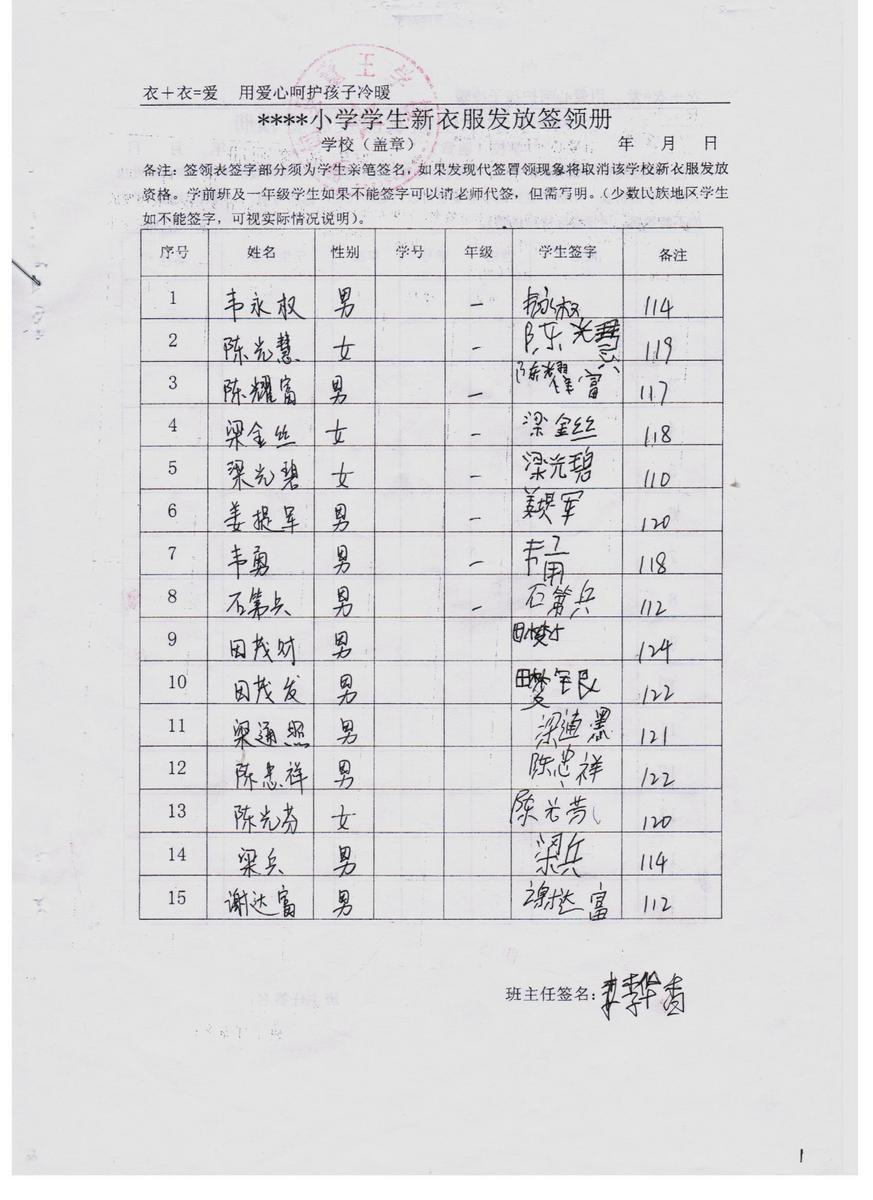 衣+衣=爱 用爱心呵护孩子冷暖
****小学学生新衣服发放签领册
学校（盖章） 年 月 日
备注：签领表签字部分须为学生亲笔签名，如果发现代签冒领现象将取消该学校新衣服发放
资格。学前班及一年级学生如果不能签字可以请老师代签，但需写明。（少数民族地区学生
如不能签字，可视实际情况说明）。
序号 姓名 性别 学号 年级 学生签字 备注
1 韦永权 男 一 韦永权 114
2 陈光慧 女 一 陈光慧 119
3 陈耀富 男 一 陈耀富 117
4 梁金丝 女 一 梁金丝 118
5 梁光碧 女 一 梁光碧 110
6 姜提军 男 一 姜提军 120
7 韦勇 男 一 韦勇 118
8 石第兵 男 一 石第兵 112
9 田茂财 男 124
10 田茂发 男 122
11 梁通照 男 梁通 121
12 陈忠祥 男 陈忠祥 122
13 陈光芬 女 陈光芬 120
14 梁兵 男 梁兵 114
15 谢达富 男 谢达富 112
班主任签名：
1